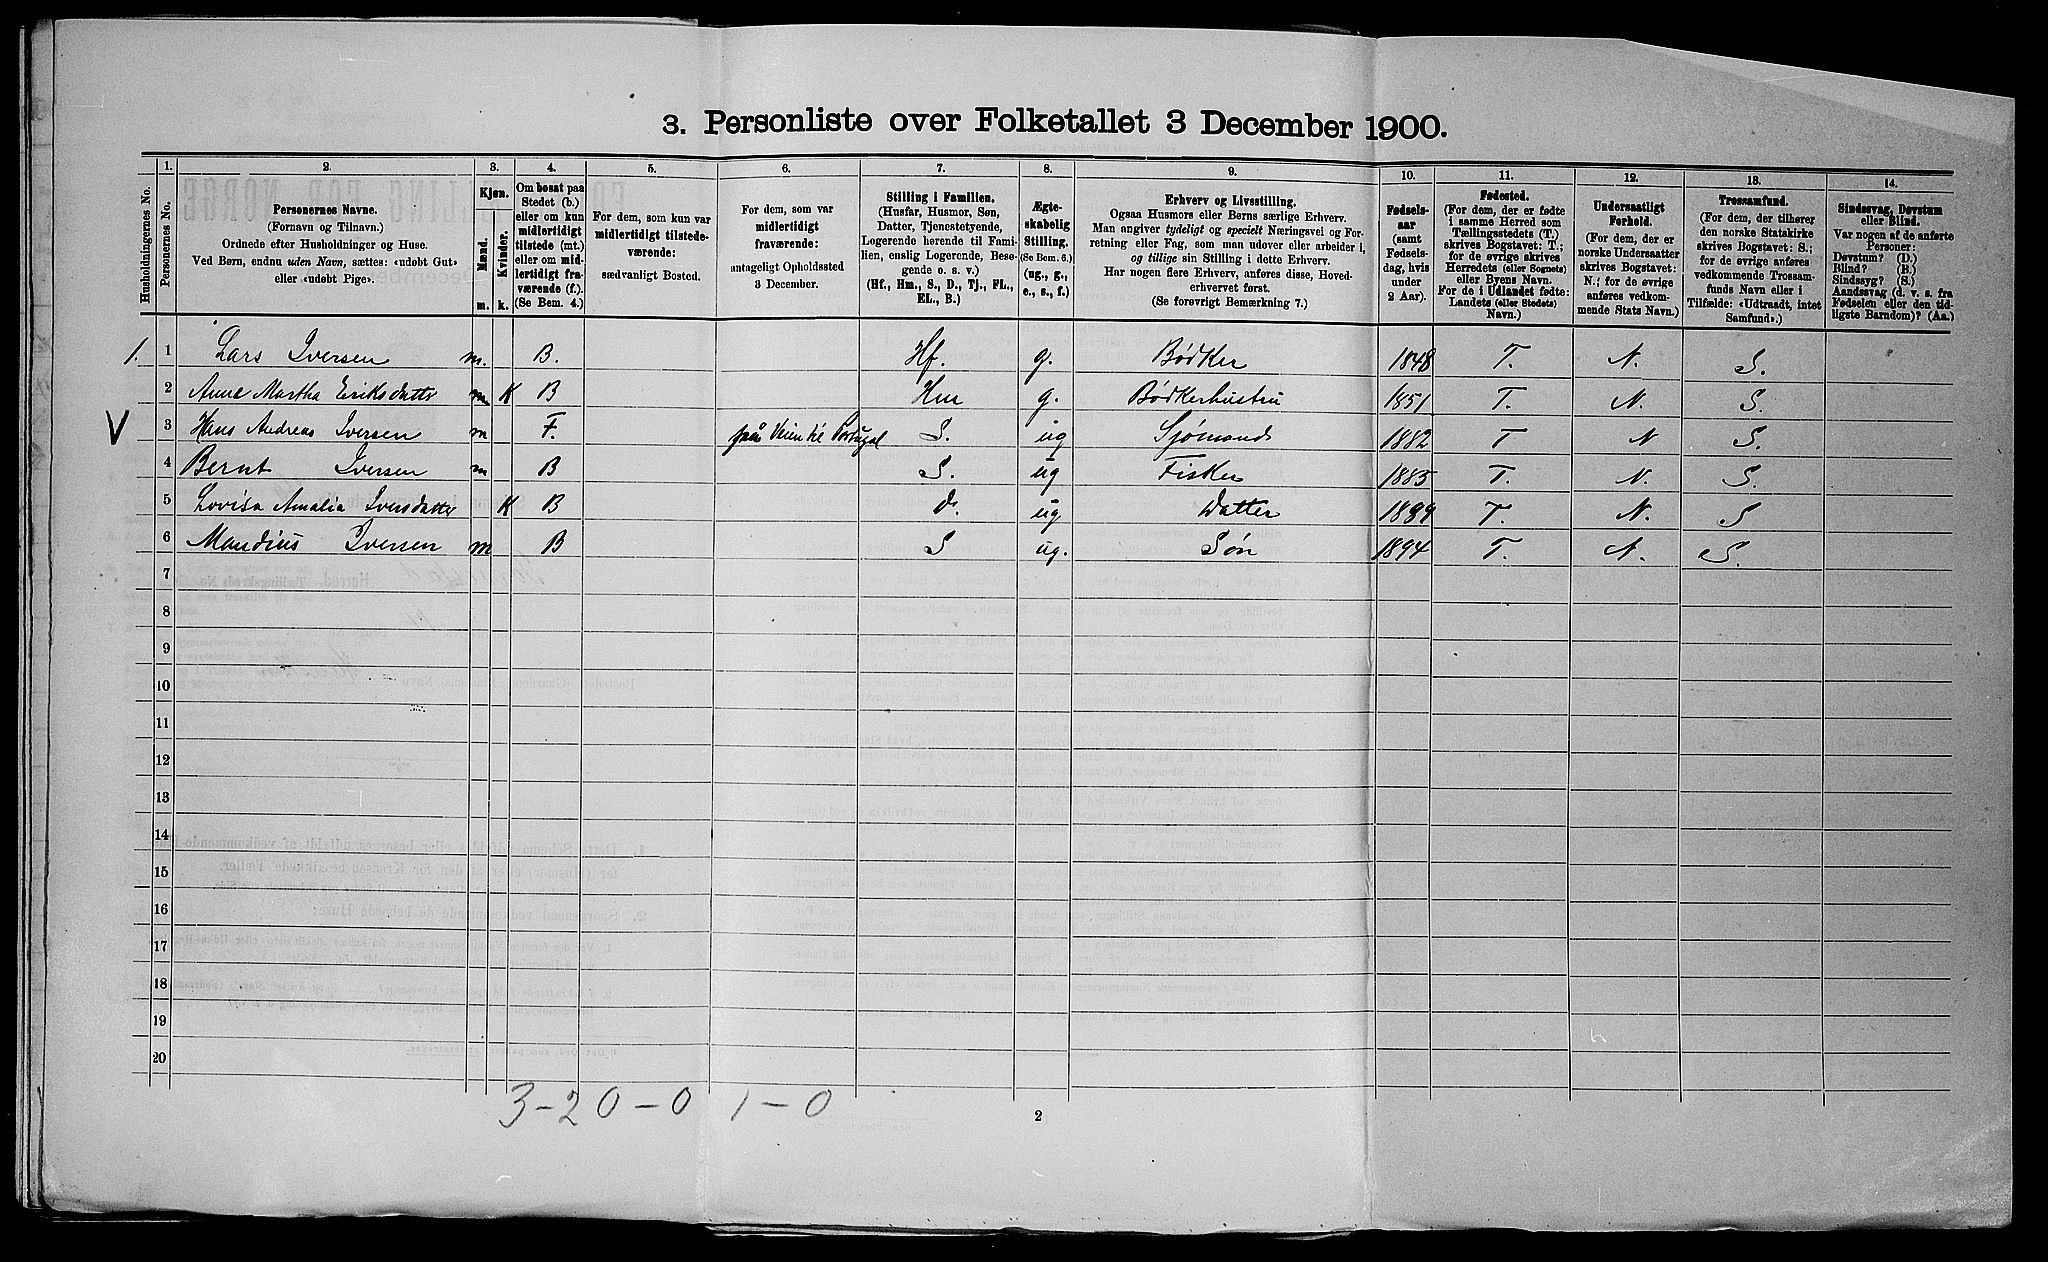 3. Personliste over Folketallet 3 December 1900.
Husholdningernes No.
1. Personernes No.
2. Personernes Navne.
(Fornavn og Tilnavn.)
Ordnede efter Husholdninger og Huse.
Ved Børn, endnu uden Navn, sættes: «udøbt Gut»
eller «udøbt Pige».
3. Kjøn.
Mænd. m.
Kvinder. k.
4. Om bosat paa
Stedet (b.)
eller om kun
midlertidigt
tilstede (mt.)
eller om mid-
lertidigt fra-
værende (f.).
(Se Bem. 4.)
5. For dem, som kun var
midlertidigt tilstede-
værende:
sædvanligt Bosted.
6. For dem, som var
midlertidigt
fraværende:
antageligt Opholdssted
3 December.
7. Stilling i Familien.
(Husfar, Husmor, Søn,
Datter, Tjenestetyende,
Logerende hørende til Fami-
lien, enslig Logerende, Besø-
gende o. s. v.)
(Hf., Hm., S., D., Tj., FL.,
EL., B.)
8. Ægte-
skabelig
Stilling.
(Se Bem. 6.)
(ug., g.,
e., s., f.)
9. Erhverv og Livsstilling.
Ogsaa Husmors eller Børns særlige Erhverv.
Man angiver tydeligt og specielt Næringsvei og For-
retning eller Fag, som man udover eller arbeider i,
og tillige sin Stilling i dette Erhverv.
Har nogen flere Erhverv, anføres disse, Hoved-
erhvervet først.
(Se forøvrigt Bemærkning 7.)
10. Fødsels-
aar
(samt
Fødsels-
dag, hvis
under
2 Aar).
11. Fødested.
(For dem, der er fødte
i samme Herred som
Tællingsstedets (T.)
skrives Bogstavet: T.;
for de øvrige skrives
Herredets (eller Sognets)
eller Byens Navn.
For de i Udlandet fødte:
Landets (eller Stedets)
Navn.)
12. Undersaatligt
Forhold.
(For dem, der er
norske Undersaatter
skrives Bogstavet:
N.; for de øvrige
anføres vedkom-
mende Stats Navn.)
13. Trossamfund.
(For dem, der tilhører
den norske Statskirke
skrives Bogstavet: S.;
for de øvrige anføres
vedkommende Trossam-
funds Navn eller i
Tilfælde: «Udtraadt, intet
Samfund».)
14. Sindssvag, Døvstum
eller Blind.
Var nogen af de anførte
Personer:
Døvstum? (D.)
Blind? (B.)
Sindssyg? (S.)
Aandssvag (d. v. s. fra
Fødselen eller den tid-
ligste Barndom)? (Aa.)
1. 1 Lars Iversen m. B. Hf. g. Bødker 1848 T. N. S.
2 Anne Martha Eriksdatter m K B Hm g. Bødkerhustru 1851 T. N. S.
V 3 Hans Andreas Iversen m F. paa Veien til Portugal S. ug Sjømand 1882 T N S.
4 Bernt Iversen m B S. ug Fisker 1885 T. N. S.
5 Lovisa Amalia Iversdatter K B d. ug Datter 1889 T. N. S
6 Mandius Iversen m B S ug. Søn 1894 T. N. S.
7
8
9
10
11
12
13
14
15
16
17
18
19
20
3-2 0-0 1-0
2